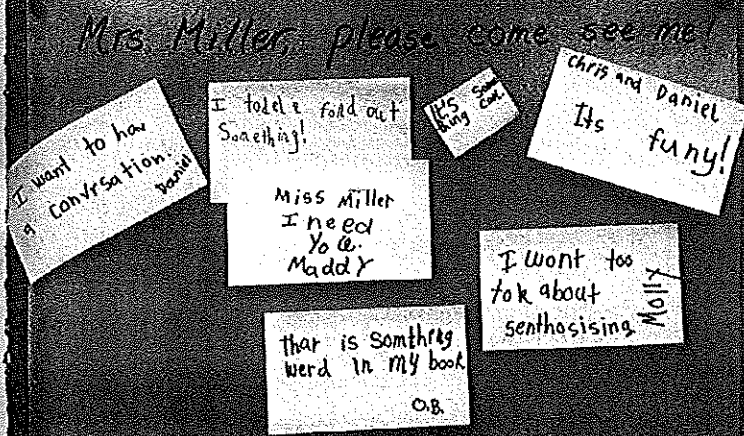 Mrs. Miller, please come see me!
I want to hav
a convrsation.
Daniel
I fond out
Something!
It's som
thing cool.
Chris and Daniel
Its funy!
Miss Miller
I need
you.
Maddy
I wont too
tok about
senthasising
Molly
thar is somthing
werd in my book
O.B.